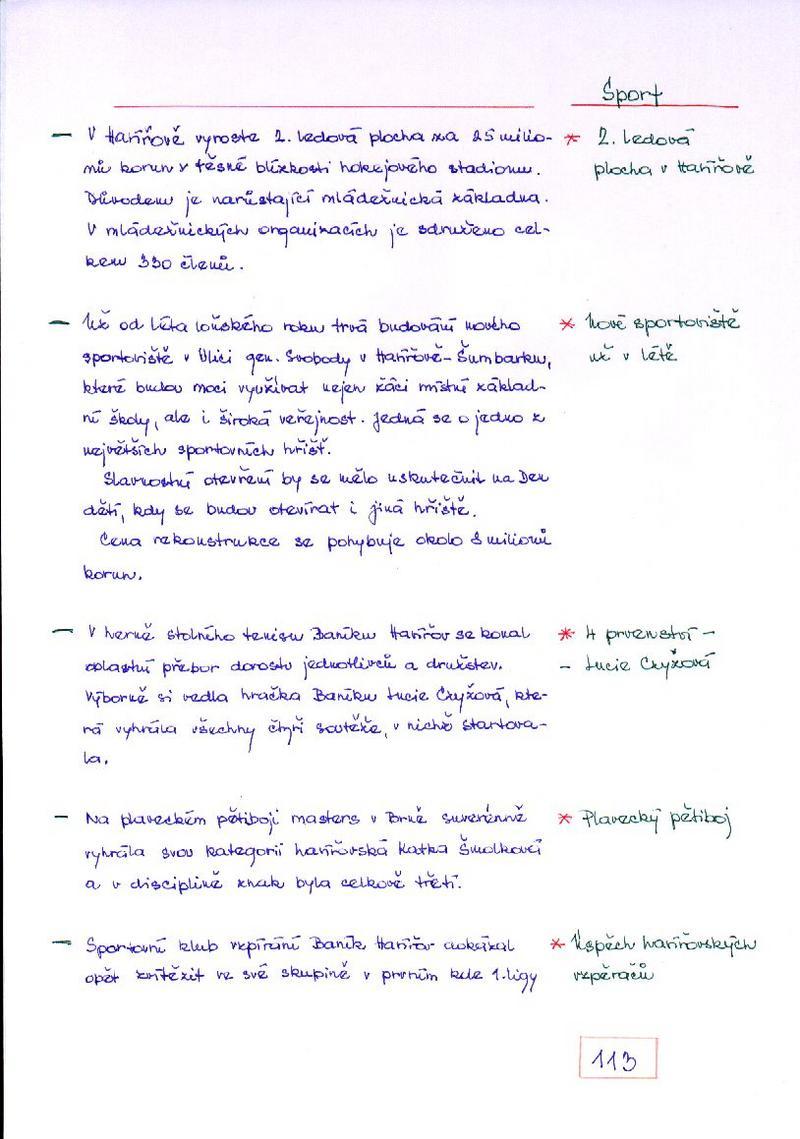 Sport
— V Havířově vyroste 2. ledová plocha za 25 milio-
nů korun v těsné blízkosti hokejového stadionu.
Důvodem je narůstající mládežnická základna.
V mládežnických organizacích je sdruženo cel-
kem 330 členů.
* 2. ledová
plocha v Havířově
— Už od léta loňského roku trvá budování nového
sportoviště v Ulici gen. Svobody v Havířově-Šumbarku,
které budou moci využívat nejen žáci místní základ-
ní školy, ale i široká veřejnost. Jedná se o jedno z
největších sportovních hřišť.
Slavnostní otevření by se mělo uskutečnit na Den
dětí, kdy se budou otevírat i jiná hřiště.
Cena rekonstrukce se pohybuje okolo 8 milionů
korun.
* Nové sportoviště
už v létě
— V herně stolního tenisu Baníku Havířov se konal
oblastní přebor dorostu jednotlivců a družstev.
Výborně si vedla hráčka Baníku Lucie Czyžová, kte-
rá vyhrála všechny čtyři soutěže, v nichž startova-
la.
* 4 prvenství –
– Lucie Czyžová
— Na plaveckém pětiboji masters v Brně suverénně
vyhrála svou kategorii havířovská Katka Šmolková
a v disciplině znak byla celkově třetí.
* Plavecký pětiboj
— Sportovní klub vzpírání Baník Havířov dokázal
opět zvítězit ve své skupině v prvním kole 1. ligy
* Úspěch havířovských
vzpěračů
113